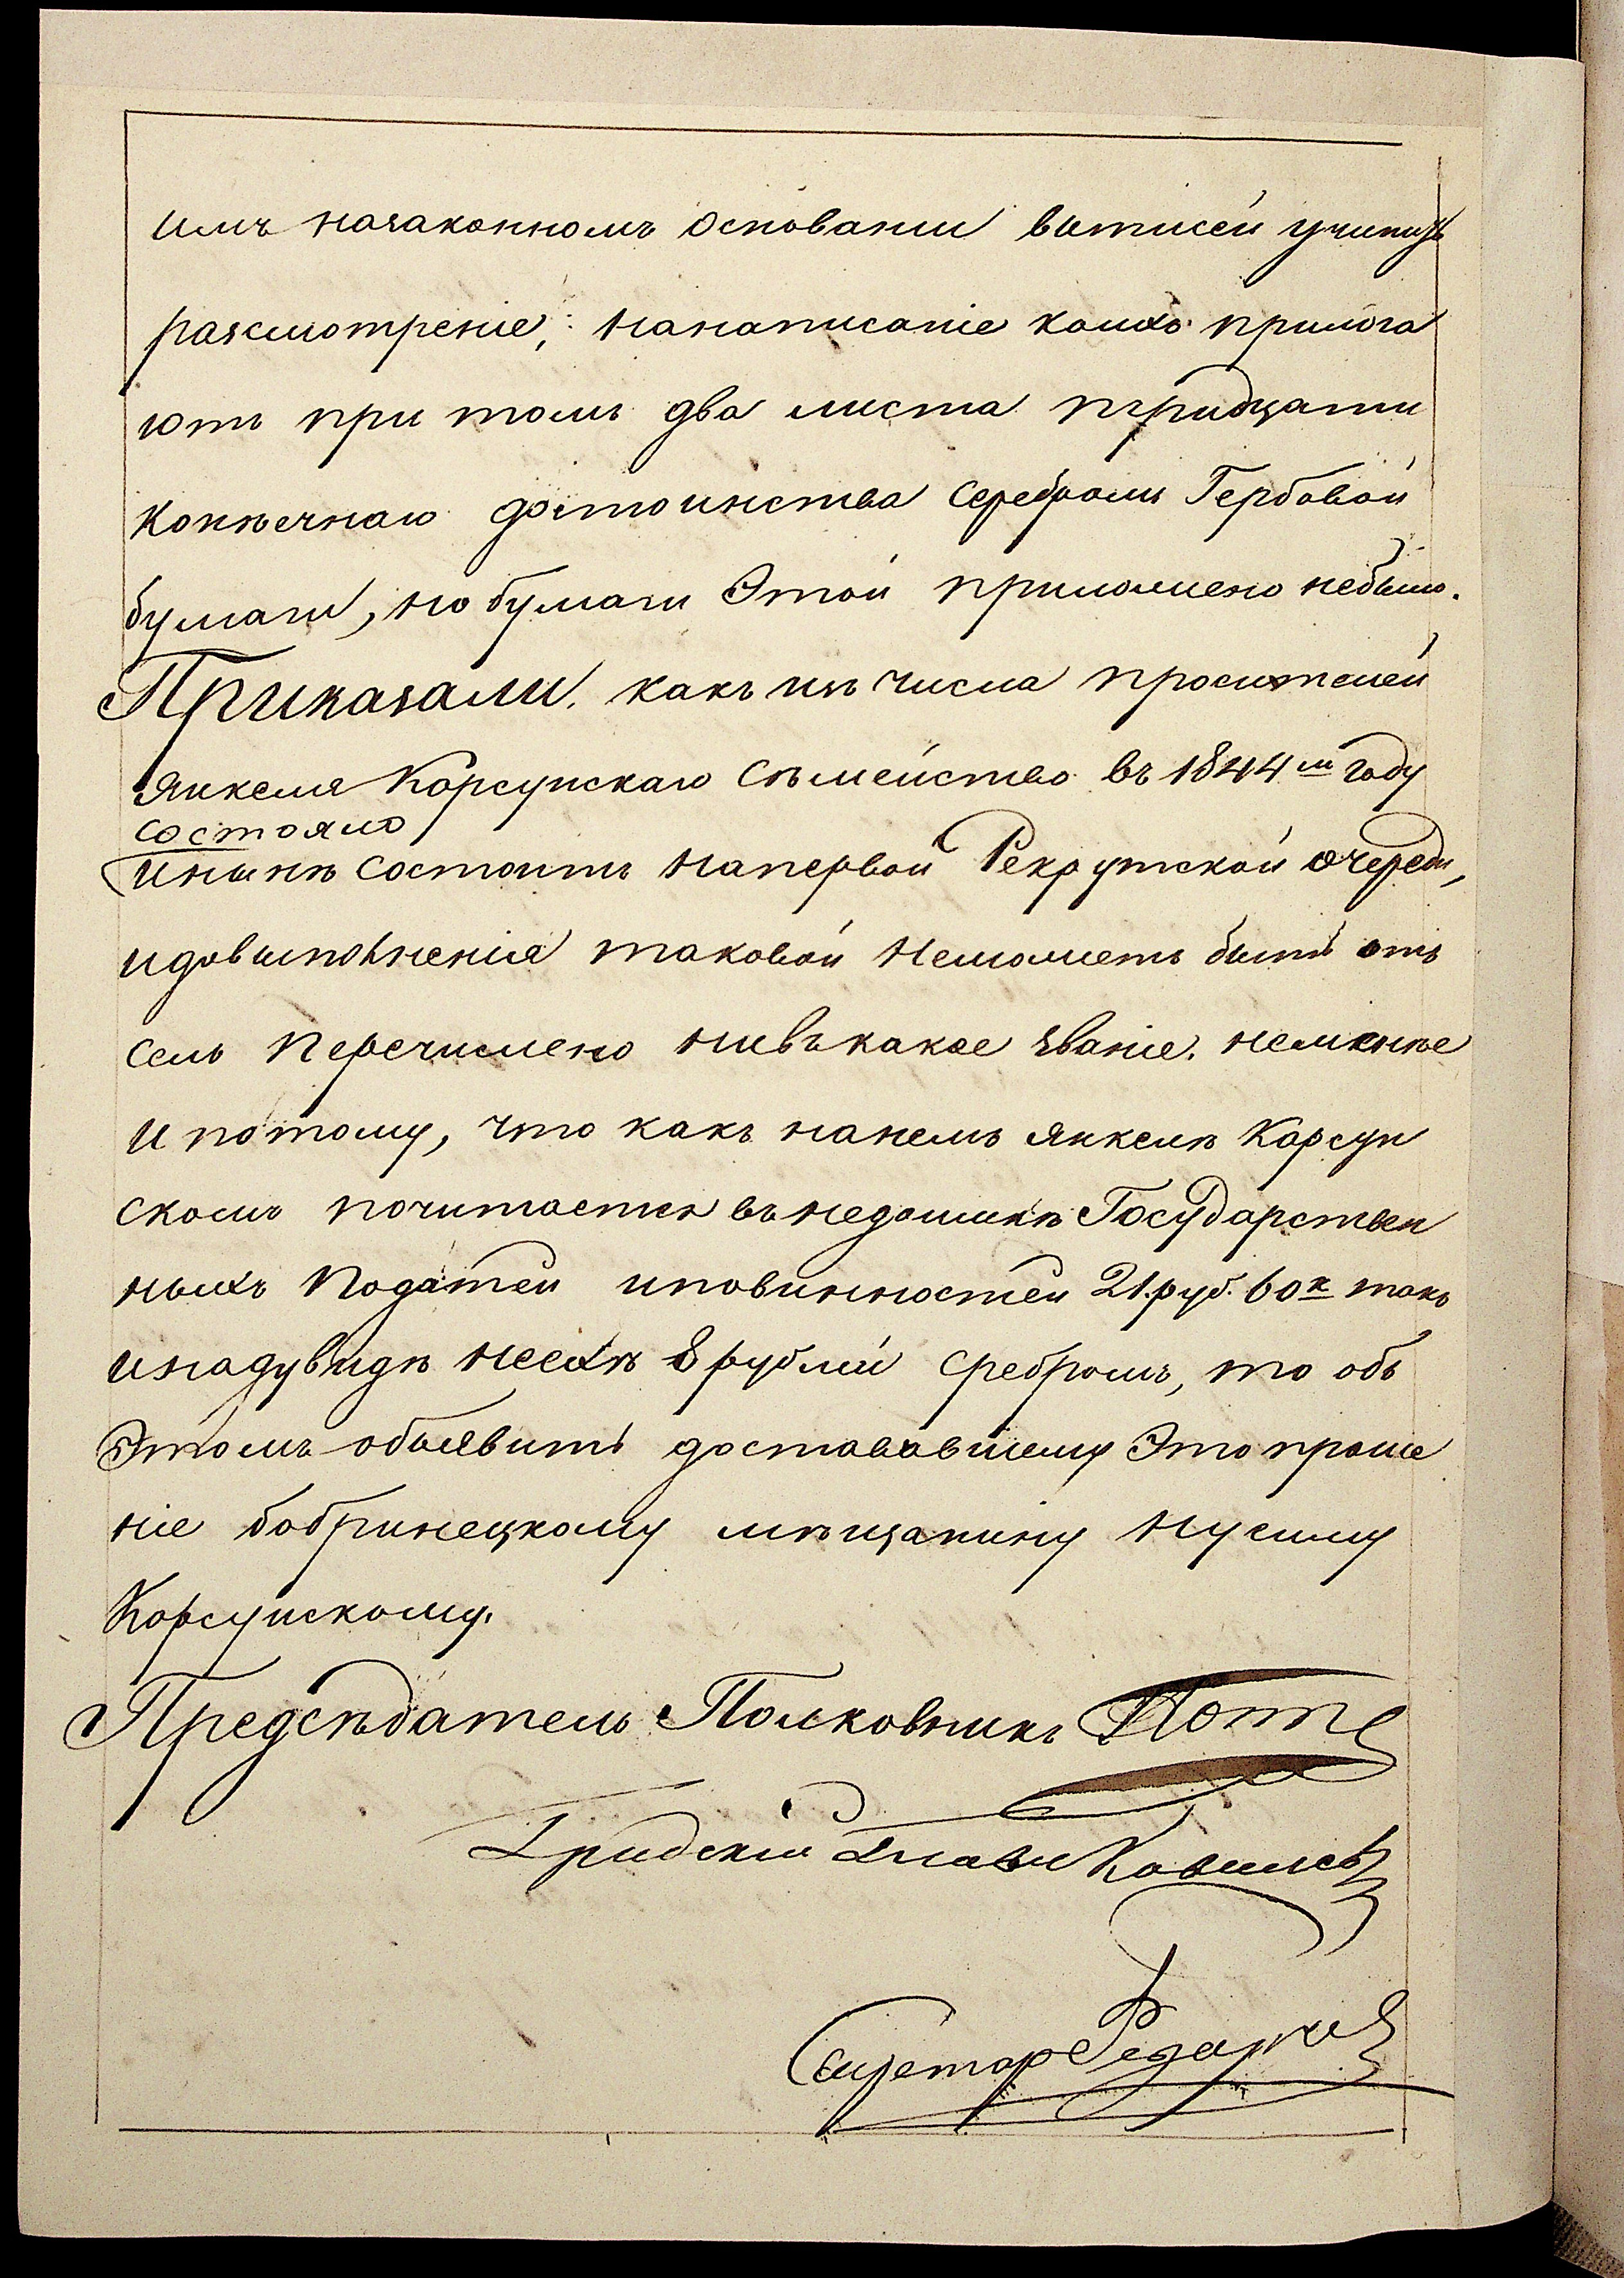 имъ назаконномъ основании выписей учинить
разсмотрение; нанаписаніе коихъ прилога
ютъ при томъ два листа тридцати
копѣечнаго достоинства серебромъ Гербовой
бумаги, но бумаги Этой приложено небыло.
Приказали. какъ изъ числа просителей
Янкеля Корсунскаго Сѣмейство въ 1844м году
состояло
инынѣ состоитъ напервой Рекрутской очереди,
идовыполненія таковой неможетъ быть отъ
селъ перечислено нивъкакое званіе. неменѣе
и потому, что какъ нанемъ Янкелѣ Корсун
скомъ почитается въ недоимкѣ Государствен
ныхъ Податей иповинностей 21.руб. 60к такъ
8 рублей сребромъ, то объ
Этомъ объявить доставовшему Это проше
ніе бобринецкому мѣщанину Нусиму
Корсунскому.
Предсѣдатель Полковникъ
Секретарь